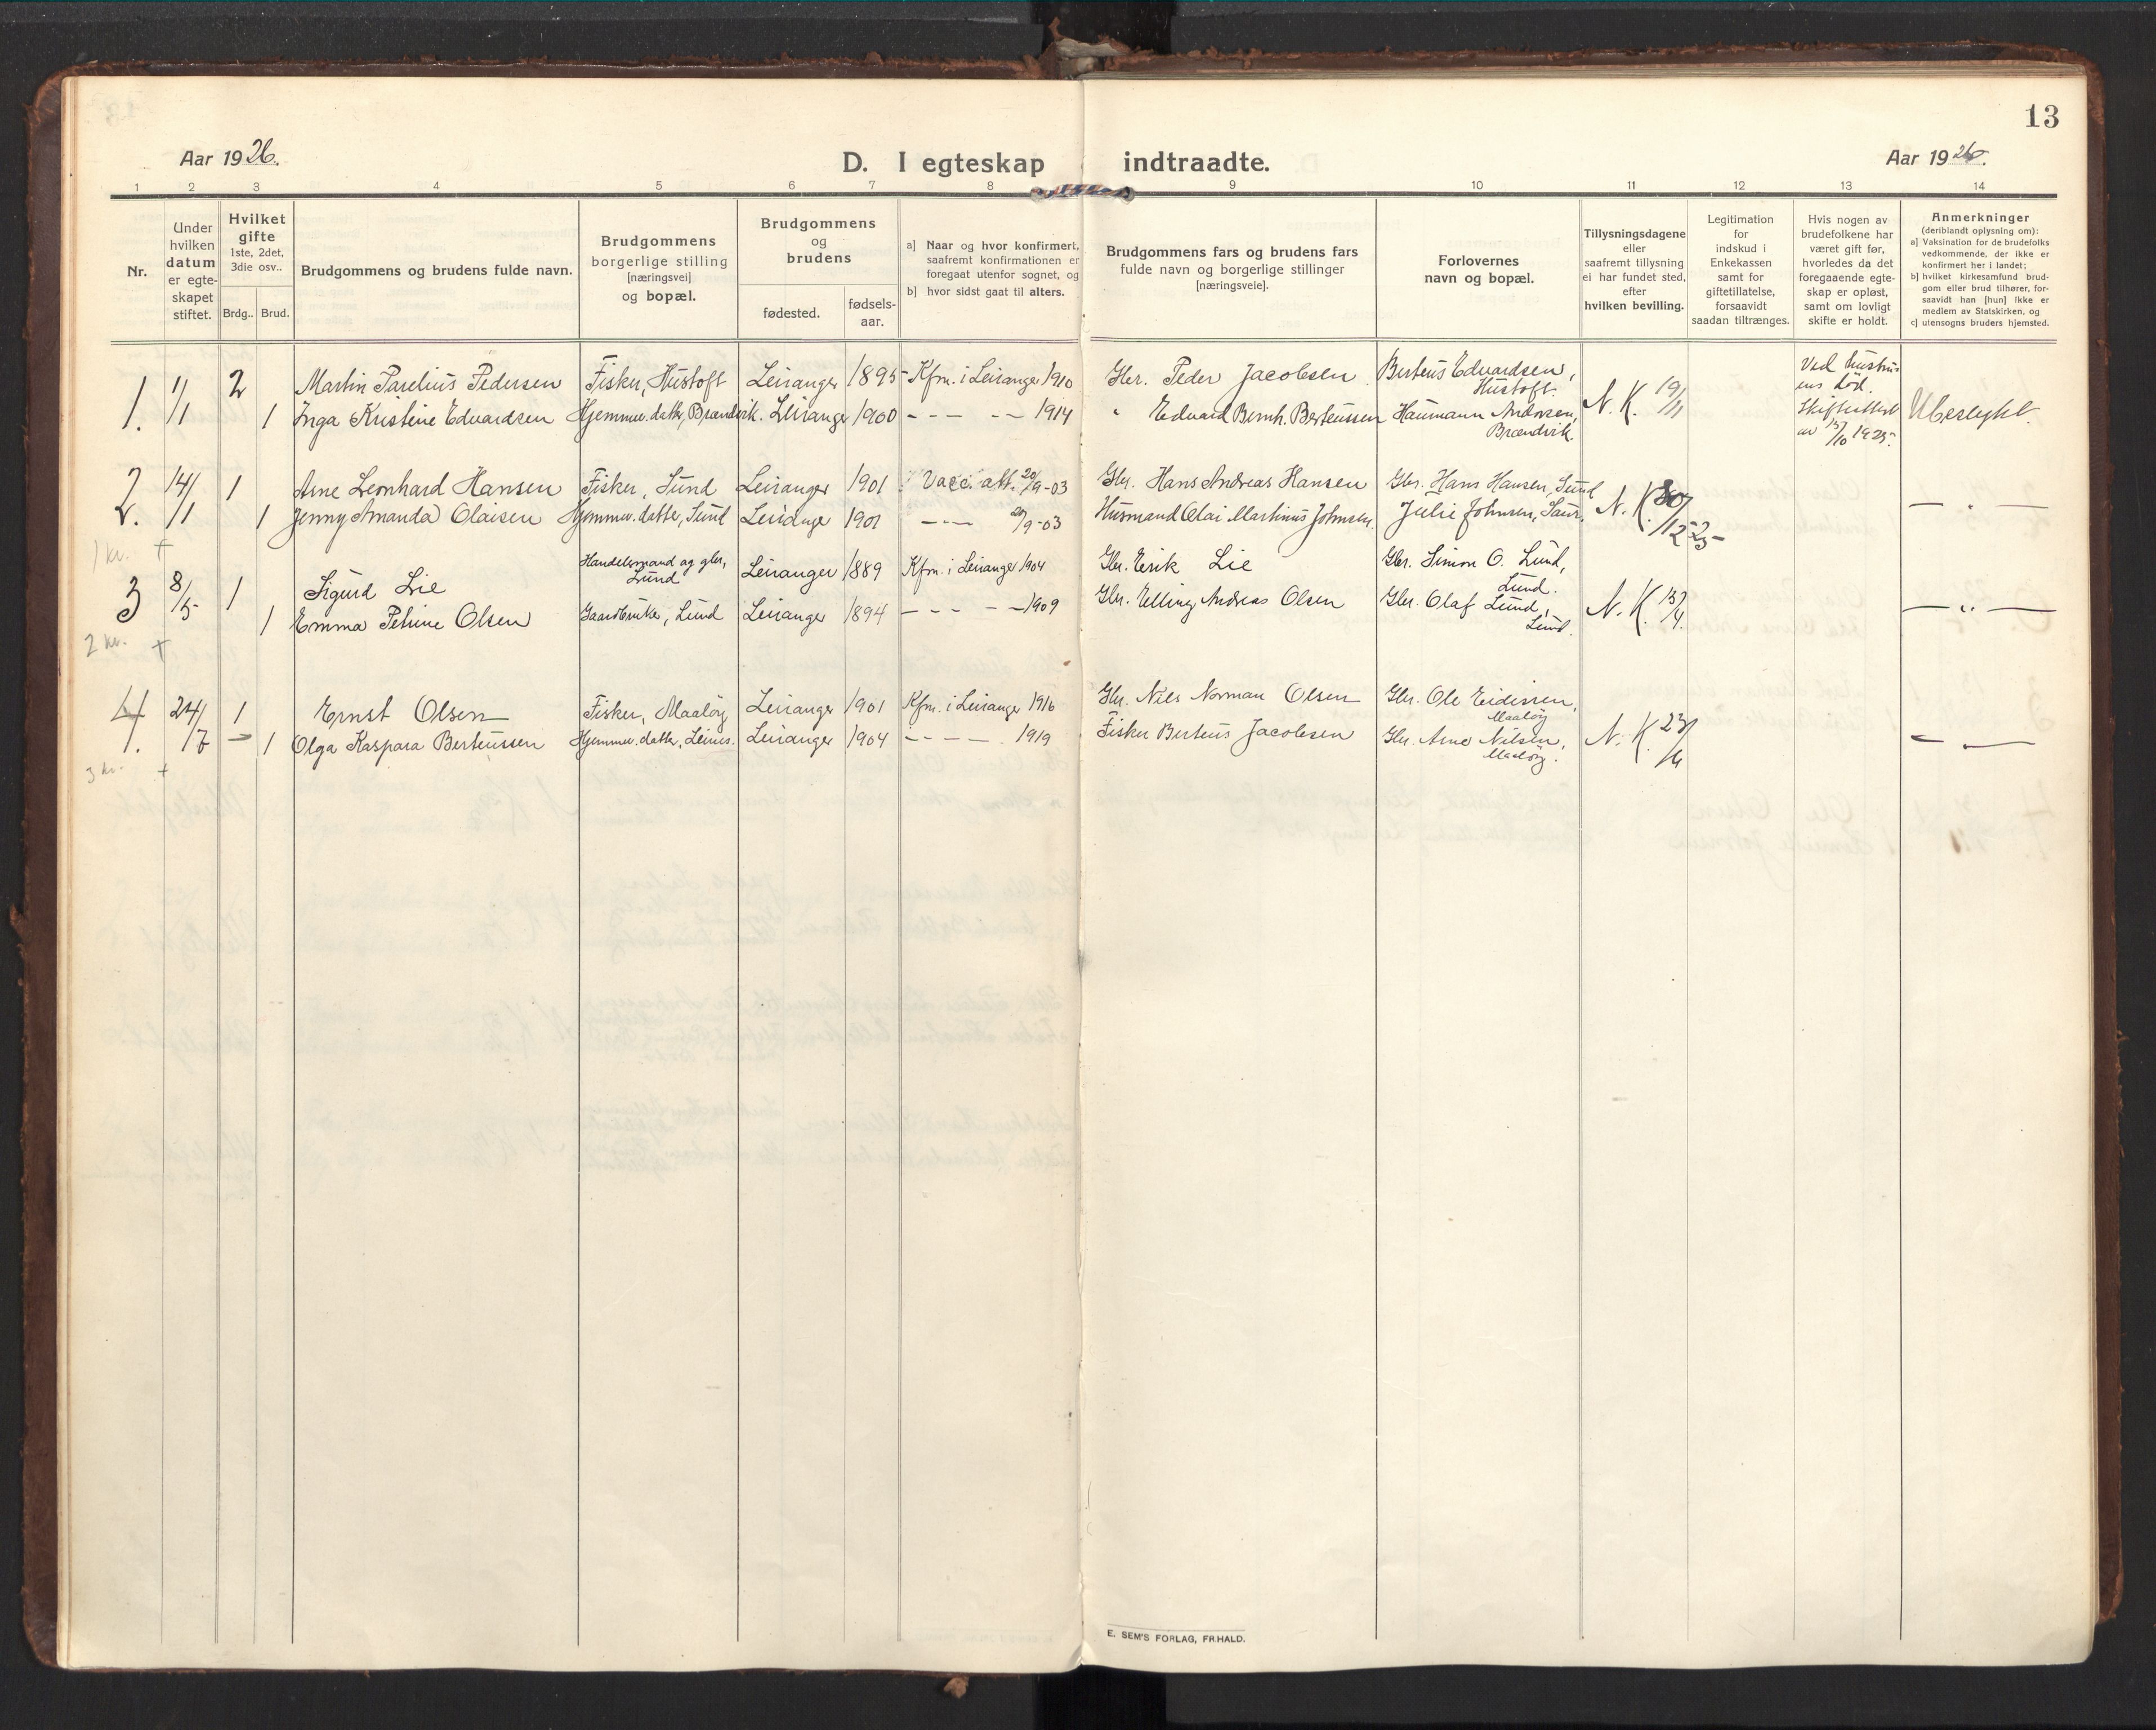 13
Aar 1926.
D. I egteskap indtraadte.
Aar 1926.
1 2 3 4 5 6 7 8 9 10 11 12 13 14
Nr.
Under hvilken datum er egte-skapet stiftet.
Hvilket gifte 1ste, 2det, 3die osv..
Brdg.. Brud.
Brudgommens og brudens fulde navn.
Brudgommens borgerlige stilling [næringsvei] og bopæl.
Brudgommens og brudens
fødested. fødsels-aar.
a] Naar og hvor konfirmert, saafremt konfirmationen er foregaat utenfor sognet, og
b] hvor sidst gaat til alters.
Brudgommens fars og brudens fars fulde navn og borgerlige stillinger [næringsveie].
Forlovernes navn og bopæl.
Tillysningsdagene eller saafremt tillysning ei har fundet sted, efter hvilken bevilling.
Legitimation for indskud i Enkekassen samt for giftetillatelse, forsaavidt saadan tiltrænges.
Hvis nogen av brudefolkene har været gift før, hvorledes da det foregaaende egte-skap er opløst, samt om lovligt skifte er holdt.
Anmerkninger (deriblandt oplysning om):
a] Vaksination for de brudefolks vedkommende, der ikke er konfirmert her i landet;
b] hvilket kirkesamfund brud-gom eller brud tilhører, for-saavidt han [hun] ikke er medlem av Statskirken, og
c] utensogns bruders hjemsted.
1. 1/1 2 Martin Parelius Pedersen Fisker, Hustoft Leiranger 1895 Kfm. i Leiranger 1910 Gbr. Peder Jacobsen Berteus Edvardsen, Hustoft. N. K. 19/11 Ved hustruens död. Skifteattest av 15/10 1925. Ubeslegtet.
1 Inga Kristine Edvardsen Hjemmev. datter, Brændvik. Leiranger 1900 - - - - - 1914 " Edvard Bernh. Berteussen Haumann Andersen, Brændvik.
2. 14/1 1 Arne Leonhard Hansen Fisker, Sund Leiranger 1901 Vacc. att. 20/9-03 Gbr. Hans Andreas Hansen Gbr. Hans Hansen, Sund N. K. 30/12 25 — " —
1 Jenny Amanda Olaisen Hjemmev. datter, Sund Leiranger 1901 - - - 20/9-03 Husmand Olai Martinus Johnsen. Julie Johnsen,
1 kr. +
3 8/5 1 Sigurd Lie Handelsmand og gbr., Lund Leiranger 1889 Kfm. i Leiranger 1904 Gbr. Erik Lie Gbr. Simon O. Lund, Lund. N. K. 13/4. — " —
1 Emma Petrine Olsen Gaardbruker, Lund Leiranger 1894 - - - - - 1909 Gbr. Elling Andreas Olsen Gbr. Olaf Lund, Lund.
2 kr. +
4. 24/7 1 Ernst Olsen Fisker, Maalöy Leiranger 1901 Kfm. i Leiranger 1916 Gbr. Nils Norman Olsen Gbr. Ole Eidissen, Maalöy N. K. 23/6 — " —
1 Olga Kaspara Berteussen Hjemmev. datter, Leines. Leiranger 1904 - - - - 1919 Fisker Berteus Jacobsen Gbr. Arne Nilsen, Maalöy.
3 kr. +
E. SEM'S FORLAG, FR.HALD.